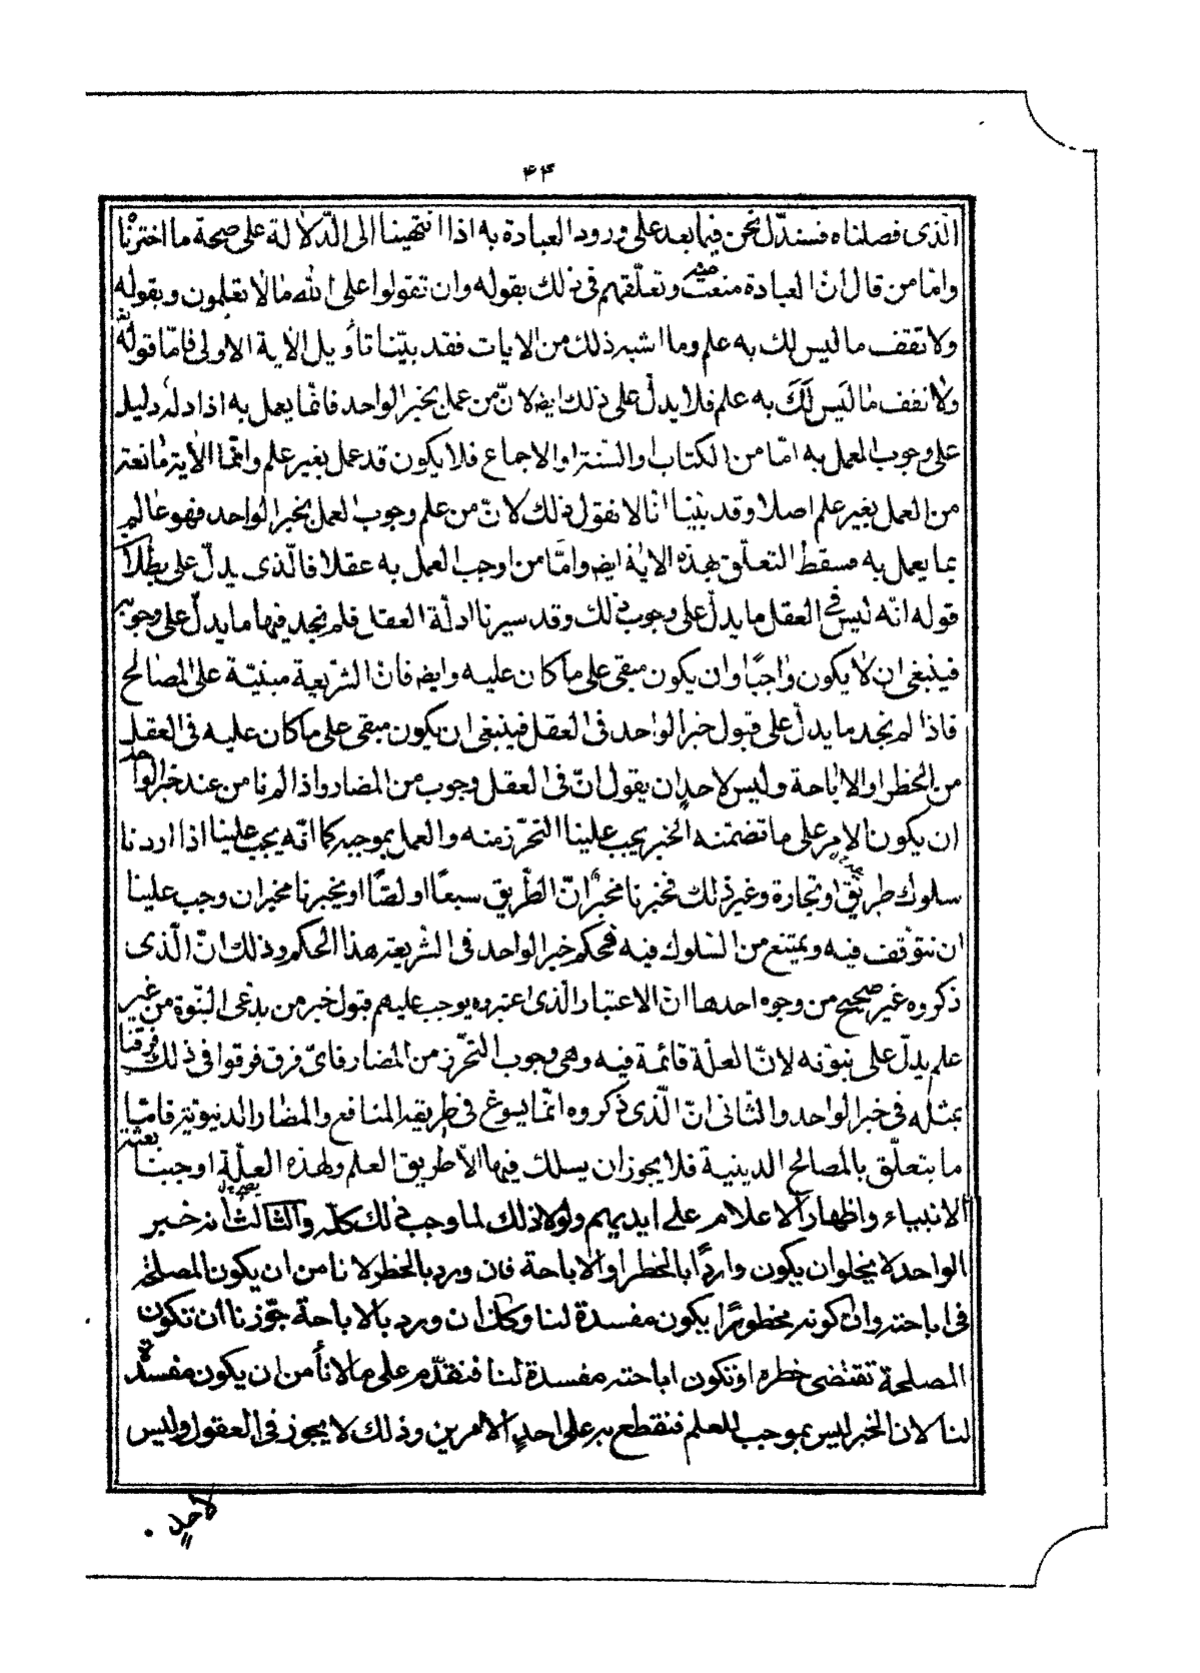 ۴۴
الّذى فصلناه فسندّل نحن فيما بعد على ورود العبادة به اذا انتهينا الى الدّلالة على صحة ما اخترنا
وامّا من قال انّ العبادة منعت منه وتعلّقهم فى ذلك بقوله وان تقولوا على الله ما لا تعلمون وبقوله
ولا تقف ما ليس لك به علم وما اشبه ذلك من الايات فقد بيّنا تأويل الاية الاولى فامّا قوله تع
ولا تقف ما ليس لك به علم فلا يدلّ على ذلك ايضه لانّ من عمل بخبر الواحد فانّما يعمل به اذا دله دليل
على وجوب العمل به امّا من الكتاب او السّنة او الاجماع فلا يكون قد عمل بغير علم وانّما الاية مانعة
من العمل بغير علم اصلا وقد بيّنا انّا لا نقول ذلك لانّ من علم وجوب العمل بخبر الواحد فهو عالم
بما يعمل به فسقط التعلّق بهذه الاية ايضه وامّا من اوجب العمل به عقلا فالّذى يدلّ على بطلان
قوله انّه ليس فى العقل ما يدلّ على وجوب ذلك وقد سيرنا ادلّة العقل فلم نجد فيها ما يدلّ على وجوبه
فينبغى ان لا يكون واجبًا وان يكون مبقى على ما كان عليه وايضه فانّ الشريعة مبنيّة على المصالح
فاذا لم نجد ما يدلّ على قبول خبر الواحد فى العقل فينبغى ان يكون مبقى على ما كان عليه فى العقل
من الحظر او الاباحة وليس لاحدٍ ان يقول انّ فى العقل وجوب من المضار واذا لم نا من عند خبر الواحد
ان يكون الامر على ما تضمّنه الخبر يجب علينا التحرّز منه والعمل بموجبه كما انّه يجب علينا اذا اردنا
سلوك طريق او تجارة وغير ذلك فخبرنا مخبر انّ الطّريق سبعًا او لصًّا او يخبرنا مخبر ان وجب علينا
ان نتوقف فيه ويمتنع من السّلوك فيه فحكم خبر الواحد فى الشريعة هذا الحكم وذلك انّ الّذى
ذكروه غير صحيح من وجوه احدها انّ الاعتبار الّذى اعتبروه يوجب عليهم قبول خبر من يدّعى النّبوة من غير
علم يدلّ على نبوّته لانّ العلّة قائمة فيه وهى وجوب التحرّز من المضار فاىّ فرق فرقوا فى ذلك فرقنا
بمثله فى خبر الواحد والثّانى انّ الّذى ذكروه انّما يسوغ فى طريقة المنافع والمضار الدنيوية فامّا
ما يتعلّق بالمصالح الدينية فلا يجوز ان يسلك فيها الّا طريق العلم ولهذه العلّة اوجبنا بعثة
الانبياء واظهار الاعلام على ايديهم ولولا ذلك لما وجب ذلك كلّه والثالث انه خبر
الواحد لا يخلو ان يكون واردًا بالحظر او الاباحة فان ورد بالحظر لا نا من ان يكون المصلحة
فى اباحته وان كونه محظورًا يكون مفسدة لنا وكك ان ورد بالاباحة جوّزنا ان تكون
المصلحة تقتضى حظره او تكون اباحته مفسدة لنا فنقدّم على ما لا نأمن ان يكون مفسدة
لنا لان الخبر ليس بموجب للعلم فنقطع به على احدٍ الامرين وذلك لا يجوز فى العقول وليس
لاحدٍ